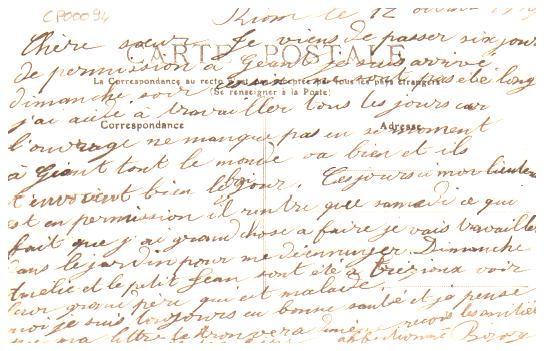 CP00094
Riom le 12
Chère sœur Je viens de passer six jours
CARTE POSTALE
de permission à Giant je suis arrivé
La Correspondance au recto n'est pas acceptée par tous les pays étrangers
(Se renseigner à la Poste)
dimanche soir pas été long
j'ai aidé à travailler tous les jours car
Correspondance
Adresse
l'ouvrage ne manque pas en se moment
à Giant tout le monde va bien et ils
t'envoient bien le bonjour. Ces jours ci mon lieutenant
est en permission il rentre que samedi ce qui
fait que j'ai grand chose à faire je vais travailler
dans le jardin pour me désennuyer. Dimanche
Amélie et le petit Jean sont été à trézioux voir
leur grand père que est malade.
moi je suis toujours en bonne santé et je pense
que ma lettre te trouvera de même reçois les amitiés
affectionné